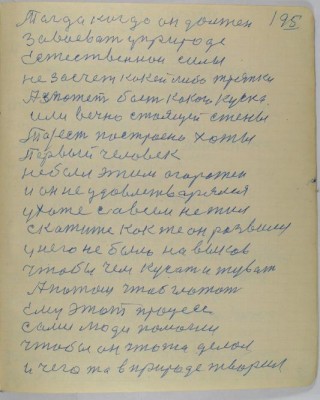 195
Тагда когдо он должен
Заваеват у природе
Естественной силы
не засчет какой либо тряпки
А может быт какова куска
или вечно стоящей стены
Тоест построено хоты
Первый человек
небыл этим огорожен
и он не удовлетварялся
у хате савсем нежил
скажите как же он
у него не было навыков
чтобы чем кусат и жуват
А потом чтоб глотат
Ему этот процесс
сами люди помогли
чтобы он что то делал
и чего та в природе творил